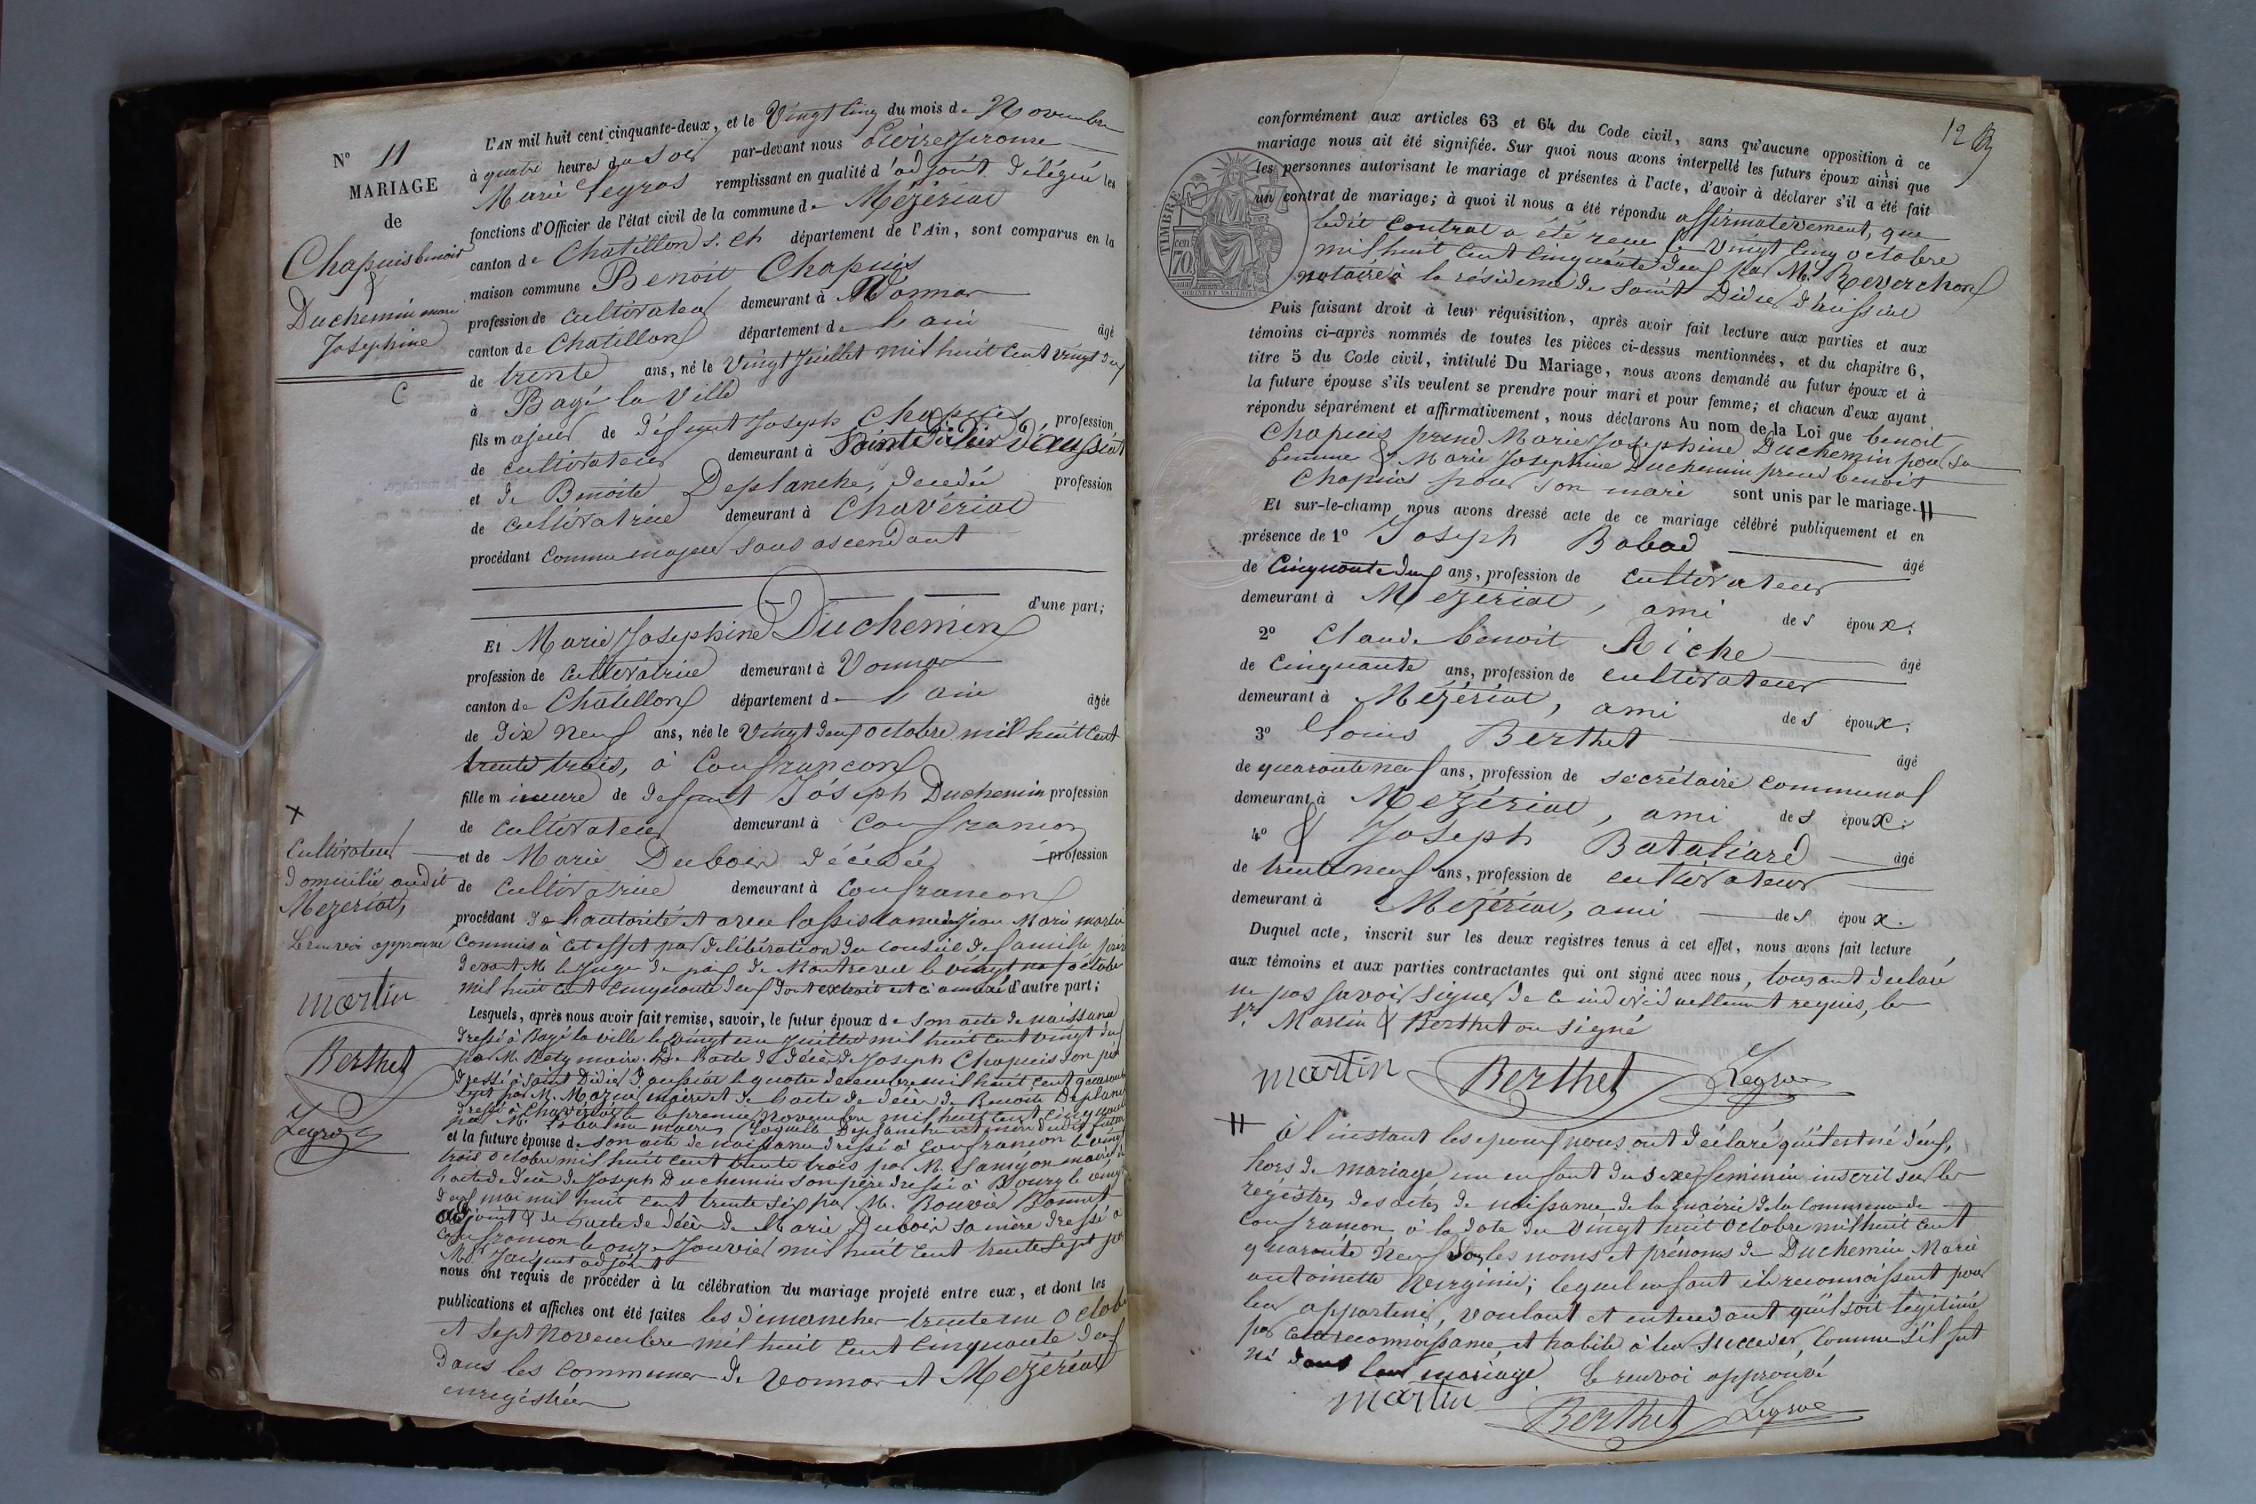 N° 11
MARIAGE
de
Chapuis benoit
&
Duchemin marie
Josephine
C
L'AN mil huit cent cinquante-deux, et le Vingt cinq du mois de Novembre
à quatre heure du Soir par-devant nous Pierre Jerome
Marie Legros remplissant en qualité d'adjoint délégué les
fonctions d'Officier de l'état civil de la commune de Mézériat
canton de Chatillon s. Ch département de l'Ain, sont comparus en la
maison commune Benoit Chapuis
profession de cultivateur demeurant à Vonnas
canton de Chatillon département de L'ain âgé
de trente ans, né le Vingt Juillet mil huit cent vingt deux
à Bagé la Ville
fils majeur de défunt Joseph Chapuis profession
de cultivateur demeurant à Saint Didier d'aussiat
et de Benoite Deplanche, décédée profession
de cultivatrice demeurant à Chavériat
procédant comme majeur sans ascendant
d'une part;
Et Marie Josephine Duchemin
profession de cultivatrice demeurant à Vonnas
canton de Chatillon département de L'ain âgée
de dix neuf ans, née le Vingt deux octobre mil huit cent
trente trois, à Confrançon
fille mineure de defunt Joseph Duchemin profession
de cultivateur demeurant à Confrançon
et de Marie Dubois décédée profession
de cultivatrice demeurant à Confrancon
procédant de l'autorité et avec l'assistance de Jean Marie martin
Commis à cet effet par délibération du conseil de famille prise
devant M. le Juge de paix de Montrevel le vingt octobre
mil huit cent cinquante deux dont extrait est ci annexé d'autre part;
X
Cultivateur
domicilié audit
Mezeriat,
Le renvoi approuvé
martin
Berthet
Legros
Lesquels, après nous avoir fait remise, savoir, le futur époux de son acte de naissance
dressé à Bagé la ville le vingt un Juillet mil huit cent vingt deux
par M. maire. de l'acte de décès de Joseph Chapuis son père
dressé à Saint Didier d'aussiat le quatre decembre mil huit cent quarante
sept par M. maire et de l'acte de décès de Benoite Deplanche
dressé à Chavériat le premier Novembre mil huit cent cinquante
par M. maire, laquelle Deplanche est mère dudit futur
et la future épouse de son acte de naissance dressé à Confrancon le vingt
trois octobre mil huit cent trente trois par M. maire de
l'acte de décès de Joseph Duchemin son père dressé à Bourg le vingt
deux mai mil huit cent trente six par M. Bouvier Bonnet
adjoint & de l'acte de décès de Marie Dubois sa mère dressé à
Confrancon le onze Janvier mil huit cent trente sept par
M. adjoint
nous ont requis de procéder à la célébration du mariage projeté entre eux, et dont les
publications et affiches ont été faites les dimanches trente un octobre
et sept Novembre mil huit cent cinquante deux
dans les communes de Vonnas et Mézériat
enregistrées
12
TIMBRE
cen
70
conformément aux articles 63 et 64 du Code civil, sans qu'aucune opposition à ce
mariage nous ait été signifiée. Sur quoi nous avons interpellé les futurs époux ainsi que
les personnes autorisant le mariage et présentes à l'acte, d'avoir à déclarer s'il a été fait
un contrat de mariage; à quoi il nous a été répondu affirmativement, que
ledit Contrat a été reçu le vingt cinq octobre
mil huit cent cinquante deux par M. Reverchon
notaire à la résidence de Saint Didier d'aussiat
Puis faisant droit à leur réquisition, après avoir fait lecture aux parties et aux
témoins ci-après nommés de toutes les pièces ci-dessus mentionnées, et du chapitre 6,
titre 5 du Code civil, intitulé Du Mariage, nous avons demandé au futur époux et à
la future épouse s'ils veulent se prendre pour mari et pour femme; et chacun d'eux ayant
répondu séparément et affirmativement, nous déclarons Au nom de la Loi que benoit
Chapuis prend Marie Josephine Duchemin pour sa
femme & Marie Josephine Duchemin prend benoit
Chapuis pour son mari sont unis par le mariage. //
Et sur-le-champ nous avons dressé acte de ce mariage célébré publiquement et en
présence de 1° Joseph Bobad âgé
de Cinquante deux ans, profession de cultivateur
demeurant à Mézériat, ami des époux;
2° Claude benoit Riche âgé
de Cinquante ans, profession de cultivateur
demeurant à Mézériat, ami des époux;
3° Louis Berthet âgé
de quarante neuf ans, profession de secrétaire communal
demeurant à Mézériat, ami des époux;
4° & Joseph Bataliard âgé
de trente neuf ans, profession de cultivateur
demeurant à Mézériat, ami des époux.
Duquel acte, inscrit sur les deux registres tenus à cet effet, nous avons fait lecture
aux témoins et aux parties contractantes qui ont signé avec nous, tous ont declaré
ne pas savoir signer de ce individuellement requis, les
Srs Martin & Berthet ont signé
martin Berthet Legros
// à l'instant les epoux nous ont déclaré qu'il est né d'eux,
hors de mariage, un enfant du sexe feminin inscrit sur les
registres des actes de naissance de la mairie de la commune de
Confrancon à la date du vingt huit Octobre mil huit cent
quarante neuf sous les noms et prénoms de Duchemin Marie
antoinette Virginie; lequel enfant ils reconnaissent pour
leur appartenir, voulant et entendant qu'il soit légitimé
par cette reconnaissance et habile à leur succeder, comme s'il fut
né dans leur mariage. Le renvoi approuvé
martin
Berthet Legros